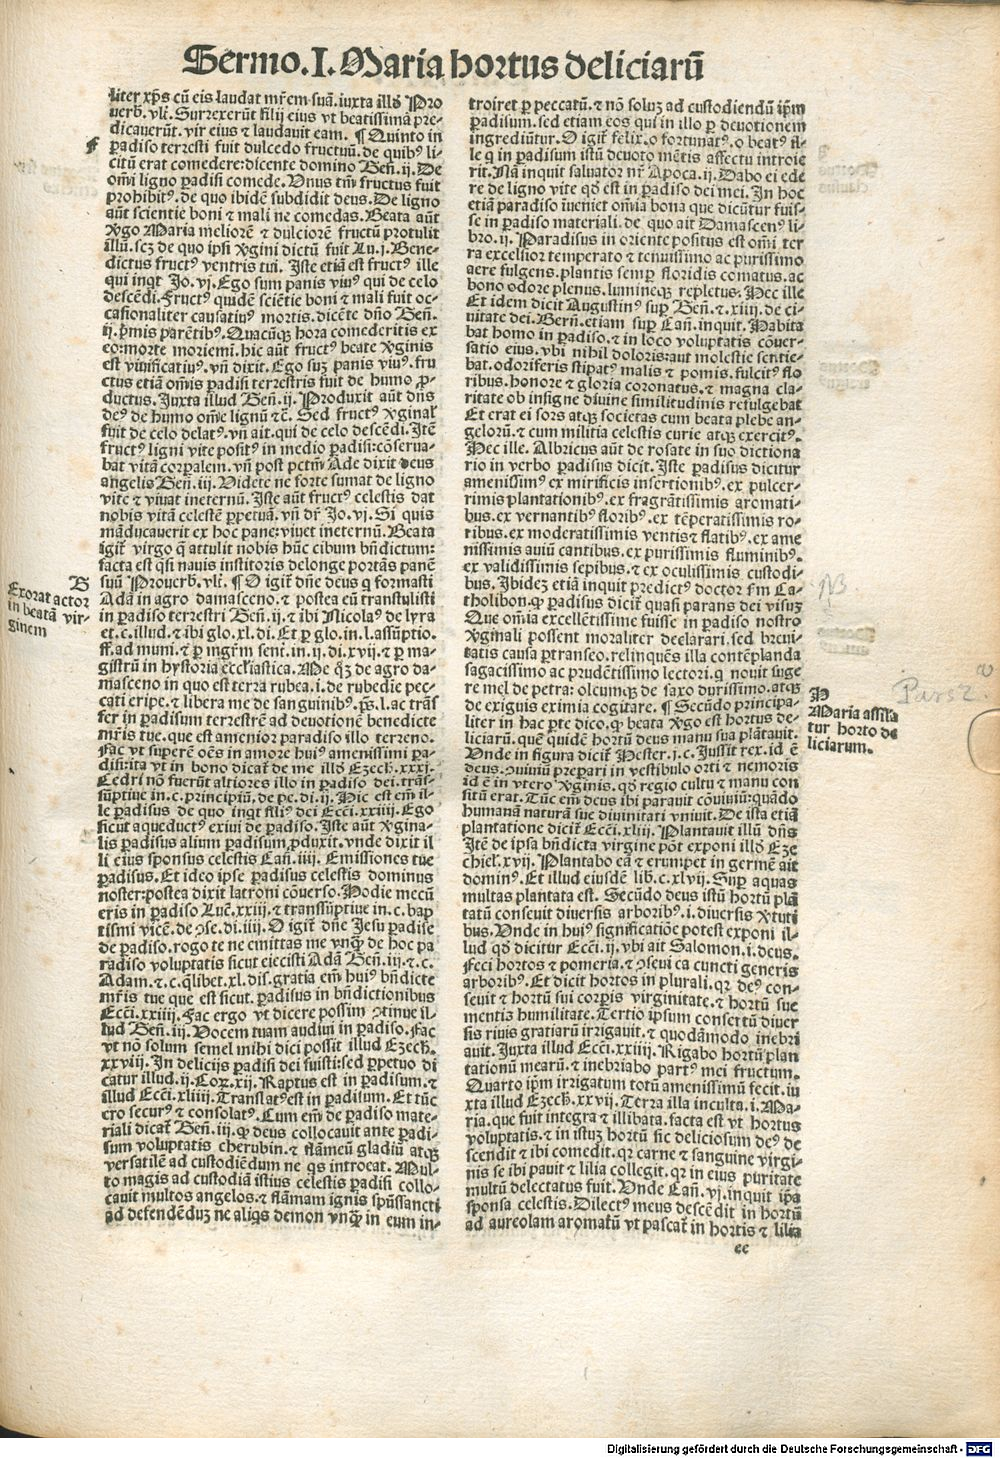 Sermo.I.Maria hortus deliciarū
liter xp̄s cū eis laudat mr̄em suā. iuxta illḋ Pro
uerb. vlt̄. Surrexerūt filij eius vt beatissimā pre-
dicauerūt. vir eius ⁊ laudauit eam. ¶ Quinto in
f
paradiso terrestri fuit dulcedo fructuū. de quibꝰ li-
citū erat comedere: dicente domino Gen̄. ij. De
om̄i ligno ꝑadisi comede. Unus tm̄ fructus fuit
prohibitꝰ. de quo ibidē subdidit deus. De ligno
aūt scientie boni ⁊ mali ne comedas. Beata aūt
v̄go Maria meliorē ⁊ dulciorē fructū protulit
illū. scꝫ de quo ipsi v̄gini dictū fuit Lu. j. Bene-
dictus fructꝰ ventris tui. Iste etiā est fructꝰ ille
qui inqt Jo. vj. Ego sum panis viuꝰ qui de celo
descēdi. Fructꝰ quidē sciētie boni ⁊ mali fuit oc-
casionaliter causatiuꝰ mortis. dicēte dn̄o Gen̄.
ij. pͥmis parētibꝰ. Quacūqꝫ hora comederitis ex
eo: morte moriemī. hic aūt fructꝰ beate v̄ginis
est viuificatiuꝰ. vn̄ dixit. Ego suꝫ panis viuꝰ. fru
ctus etiā om̄is ꝑadisi terrestris fuit de humo ꝓ-
ductus. Iuxta illud Gen̄. ij. Produxit aūt dn̄s
deꝰ de humo om̄e lignū ⁊ċ. Sed fructꝰ v̄ginal̄
fuit de celo delatꝰ. vn̄ ait. qui de celo descēdi. Itē
fructꝰ ligni vite positꝰ in medio ꝑadisi: cōserua-
bat vitā corꝑalem. vn̄ post pctm̄ Ade dixit deus
angelis Gen̄. iij. Videte ne forte sumat de ligno
vite ⁊ viuat ineternū. Iste aūt fructꝰ celestis dat
nobis vitā celestē ꝑpetuā. vn̄ dr̄. Jo. vj. Si quis
māducauerit ex hoc pane: viuet ineternū. Beata
igit̄ virgo q̄ attulit nobis hūc cibum bn̄dictum:
facta est qͣsi nauis institoris delonge portās panē
suū Prouerb. vlt̄. ¶ O igit̄ dn̄e deus q formasti
B
Exorat actor
in beatā vir-
ginem
Adā in agro damasceno. ⁊ postea eū transtulisti
in ꝑadiso terrestri Gen̄. ij. ⁊ ibi Nicolaꝰ de lyra
et. c. illud. ⁊ ibi glo. xl. di. Et ꝑ glo. in. l. assūptio.
ff. ad muni. ⁊ ꝑ mgr̄m sent̄. in. ij. di. xvij. ⁊ ꝑ ma-
gistrū in hystoria ecclīastica. Me qͦꝫ de agro da-
masceno in quo est terra rubea. i. de rubedie pec-
cati eripe. ⁊ libera me de sanguinibꝰ. ps̄. l. ac trās
fer in ꝑadisum terrestrē ad deuotionē benedicte
mr̄is tue. que est amenior paradiso illo terreno.
Fac vt superē oēs in amore huiꝰ amenissimi pa-
disi: ita vt in bono dicat̄ de me illḋ Ezech̄. xxxj.
Cedri nō fuerūt altiores illo in ꝑadiso dei. trās-
sūptiue in. c. principiū. de pe. di. ij. Hic est em̄ il-
le ꝑadisus de quo inquit filiꝰ dei Ecc̄i. xxiiij. Ego
sicut aqueductꝰ exiui de ꝑadiso. Iste aūt v̄gina-
lis ꝑadisus alium ꝑadisum ꝓduxit. vnde dixit il
li eius sponsus celestis Can̄. iiij. Emissiones tue
ꝑadisus. Et ideo ipse ꝑadisus celestis dominus
noster: postea dixit latroni cōuerso. Hodie mecū
eris in ꝑadiso Luc̄. xxiij. ⁊ transsūptiue in. c. bap
tismi vicē. de ꝯse. di. iiij. O igit̄ dn̄e Jesu ꝑadise
de ꝑadiso. rogo te ne emittas me vnqͣ de hoc pa
radiso voluptatis sicut eiecisti Adā Gen̄. iij. ⁊ c.
Adam. ⁊ c. qͦlibet. xl. dis. gratia em̄ huiꝰ bn̄dicte
mr̄is tue que est sicut. ꝑadisus in bn̄dictionibus
Ecc̄i. xxiiij. Fac ergo vt dicere possim ꝯtinue il-
lud Gen̄. iij. Vocem tuam audiui in ꝑadiso. Fac
vt nō solum semel mihi dici possit illud Ezech̄.
xxviij. In delicijs ꝑadisi dei fuisti: sed ꝑpetuo di
catur illud. ij. Coꝝ. xij. Raptus est in ꝑadisum. ⁊
illud Ecc̄i. xliiij. Translatꝰ est in ꝑadisum. Et tūc
ero securꝰ ⁊ consolatꝰ. Cum em̄ de ꝑadiso mate-
riali dicat̄ Gen̄. iij. ꝙ deus collocauit ante ꝑadi-
sum voluptatis cherubin. ⁊ flāmeū gladiū atqꝫ
versatilē ad custodiēdum ne qͥs introeat. Mul-
to magis ad custodiā istius celestis ꝑadisi collo-
cauit multos angelos. ⁊ flāmam ignis spūssancti
ad defendēduꝫ ne aliqͥs demon vnqͣ in eum in-
troiret ꝑ peccatū. ⁊ nō soluꝫ ad custodiendū ip̄m
ꝑadisum. sed etiam eos qui in illo ꝑ deuotionem
ingrediūtur. O igit̄ felix. o fortunatꝰ. o beatꝰ il-
le q in ꝑadisum istū deuoto mētis affectu introie
rit. Nā inquit saluator nr̄ Apoca. ij. Dabo ei ede
re de ligno vite qḋ est in ꝑadiso dei mei. In hoc
etiā paradiso īueniet om̄ia bona que dicūtur fuis-
se in ꝑadiso materiali. de quo ait Damascenꝰ li-
bro. ij. Paradisus in oriente positus est om̄i ter
ra excelsior temperato ⁊ tenuissimo ac purissimo
aere fulgens. plantis semꝑ floridis comatus. ac
bono odore plenus. lumineqꝫ repletus. Hec ille
Et idem dicit Augustinꝰ suꝑ Gen̄. ⁊. xiiij. de ci-
uitate dei. Bern̄. etiam suꝑ Can̄. inquit. Habita
bat homo in ꝑadiso. ⁊ in loco voluptatis cōuer-
satio eius. vbi nihil doloris: aut molestie sentie-
bat. odoriferis stipatꝰ malis ⁊ pomis. fulcitꝰ flo
ribus. honore ⁊ gloria coronatus. ⁊ magna cla-
ritate ob insigne diuine similitudinis refulgebat
Et erat ei sors atqꝫ societas cum beata plebe an-
gelorū. ⁊ cum militia celestis curie atqꝫ exercitꝰ.
Hec ille. Albricus aūt de rosate in suo dictiona
rio in verbo ꝑadisus dicit. Iste ꝑadisus dicitur
amenissimꝰ ex mirificis insertionibꝰ. ex pulcer-
rimis plantationibꝰ. ex fragrātissimis aromati-
bus. ex vernantibꝰ floribꝰ. ex tēperatissimis ro-
ribus. ex moderatissimis ventis ⁊ flatibꝰ. ex ame
nissimis auiū cantibus. ex purissimis fluminibꝰ.
ex validissimis sepibus. ⁊ ex oculissimis custodi-
bus. Ibidez etiā inquit predictꝰ doctor fm Ca-
tholibon. ꝙ ꝑadisus dicit̄ quasi parans dei visuꝫ
Que om̄ia excellētissime fuisse in ꝑadiso nostro
v̄ginali possent moraliter declarari. sed breui-
tatis causa ꝑtranseo. relinquēs illa contēplanda
sagacissimo ac prudētissimo lectori. q nouit suge
re mel de petra: oleumqꝫ de saxo durissimo. atqꝫ
de exiguis eximia cogitare. ¶ Secūdo principa-
P
Maria assīla
tur horto de
liciarum.
liter in hac ꝑte dico. ꝙ beata v̄go est hortus de-
liciarū. quē quidē hortū deus manu sua plātauit.
Unde in figura dicit̄ Hester. j. c. Iussit rex. id ē
deus. ꝯuiuiū preꝑari in vestibulo orti ⁊ nemoris
id ē in vtero v̄ginis. qḋ regio cultu ⁊ manu con
sitū erat. Tūc em̄ deus ibi parauit cōuiuiū: quādo
humanā naturā sue diuinitati vniuit. De ista etiā
plantatione dicit̄ Ecc̄i. xliij. Plantauit illū dn̄s
Itē de ipsa bn̄dicta virgine pōt exponi illḋ Eze
chiel. xvij. Plantabo eā ⁊ erumpet in germē ait
dominꝰ. Et illud eiusdē lib. c. xlvij. Suꝑ aquas
multas plantata est. Secūdo deus istū hortū plā
tatū conseuit diuersis arboribꝰ. i. diuersis v̄tuti
bus. Unde in huiꝰ significatiōe potest exponi il-
lud qḋ dicitur Ecc̄i. ij. vbi ait Salomon. i. deus.
Feci hortos ⁊ pomeria. ⁊ ꝯseui ea cuncti generis
arboribꝰ. Et dicit hortos in plurali. qꝛ deꝰ con-
seuit ⁊ hortū sui corꝑis virginitate. ⁊ hortū sue
mentis humilitate. Tertio ipsum consertū diuer
sis riuis gratiarū irrigauit. ⁊ quodāmodo inebri
auit. Iuxta illud Ecc̄i. xxiiij. Rigabo hortū plan
tationū mearū. ⁊ inebriabo partꝰ mei fructum.
Quarto ip̄m irrigatum totū amenissimū fecit. iu
xta illud Ezech̄. xxvij. Terra illa inculta. i. Ma-
ria. que fuit integra ⁊ illibata. facta est vt hortus
voluptatis. ⁊ in istuꝫ hortū sic deliciosum deꝰ de
scendit ⁊ ibi comedit. qꝛ carne ⁊ sanguine virgi-
nis se ibi pauit ⁊ lilia collegit. qꝛ in eius puritate
multū delectatus fuit. Unde Can̄. vj. inquit ip̄a
sponsa celestis. Dilectꝰ meus descēdit in hortū
ad aureolam aromatū vt pascat̄ in hortis ⁊ lilia
ee
NB
Digitalisierung gefördert durch die Deutsche Forschungsgemeinschaft -
DFG